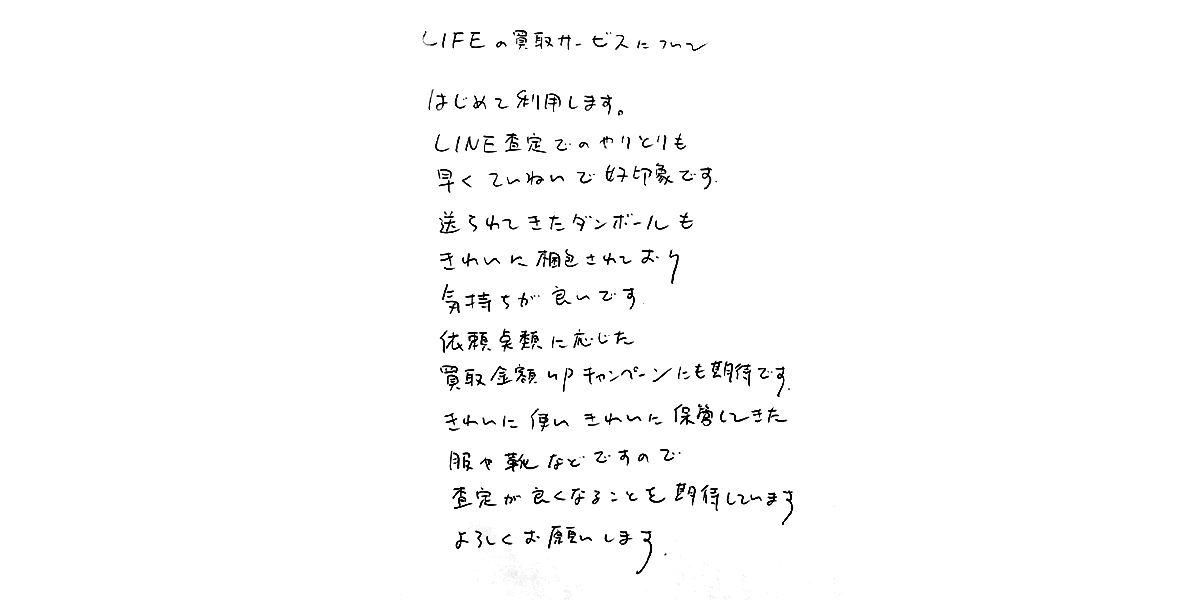 LIFEの買取サービスについて
はじめて利用します。
LINE査定でのやりとりも
早くていねいで好印象です.
送られてきたダンボールも
きれいに梱包されており
気持ちが良いです.
依頼点類に応じた
買取金額upキャンペーンにも期待です.
きれいに使いきれいに保管してきた
服や靴などですので
査定が良くなることを期待しています
よろしくお願いします.